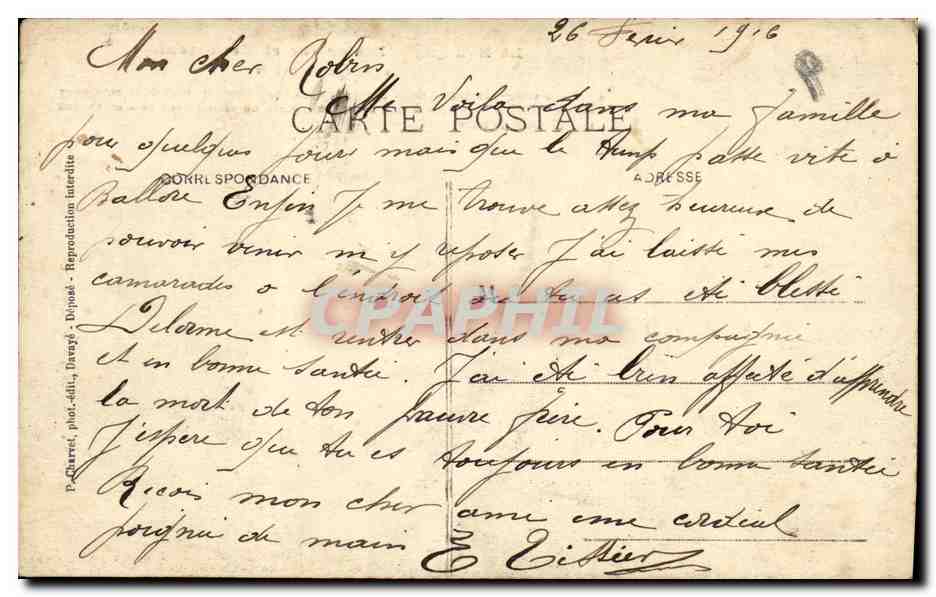 26 Fevrier 1916
Mon cher Robin
Me Voila dans ma famille
CARTE POSTALE
pour quelques jours mais que le temps passe vite a
CORRESPONDANCE
ADRESSE
Ballore Enfin Je me trouve assez heureux de
pouvoir venir m'y reposer J'ai laissé mes
camarades a l'endroit ou tu as eté blessé
CPAPHIL
Delorme est rentrer dans ma compagnie
et en bonne santée. J'ai eté bien affecté d'apprendre
la mort de ton pauvre frère. Pour toi
J'espere que tu es toujours en bonne santée
Recois mon cher ami une cordial
poignée de main E Tissier
P. Charvet, phot.-édit., Davayé - Déposé - Reproduction interdite